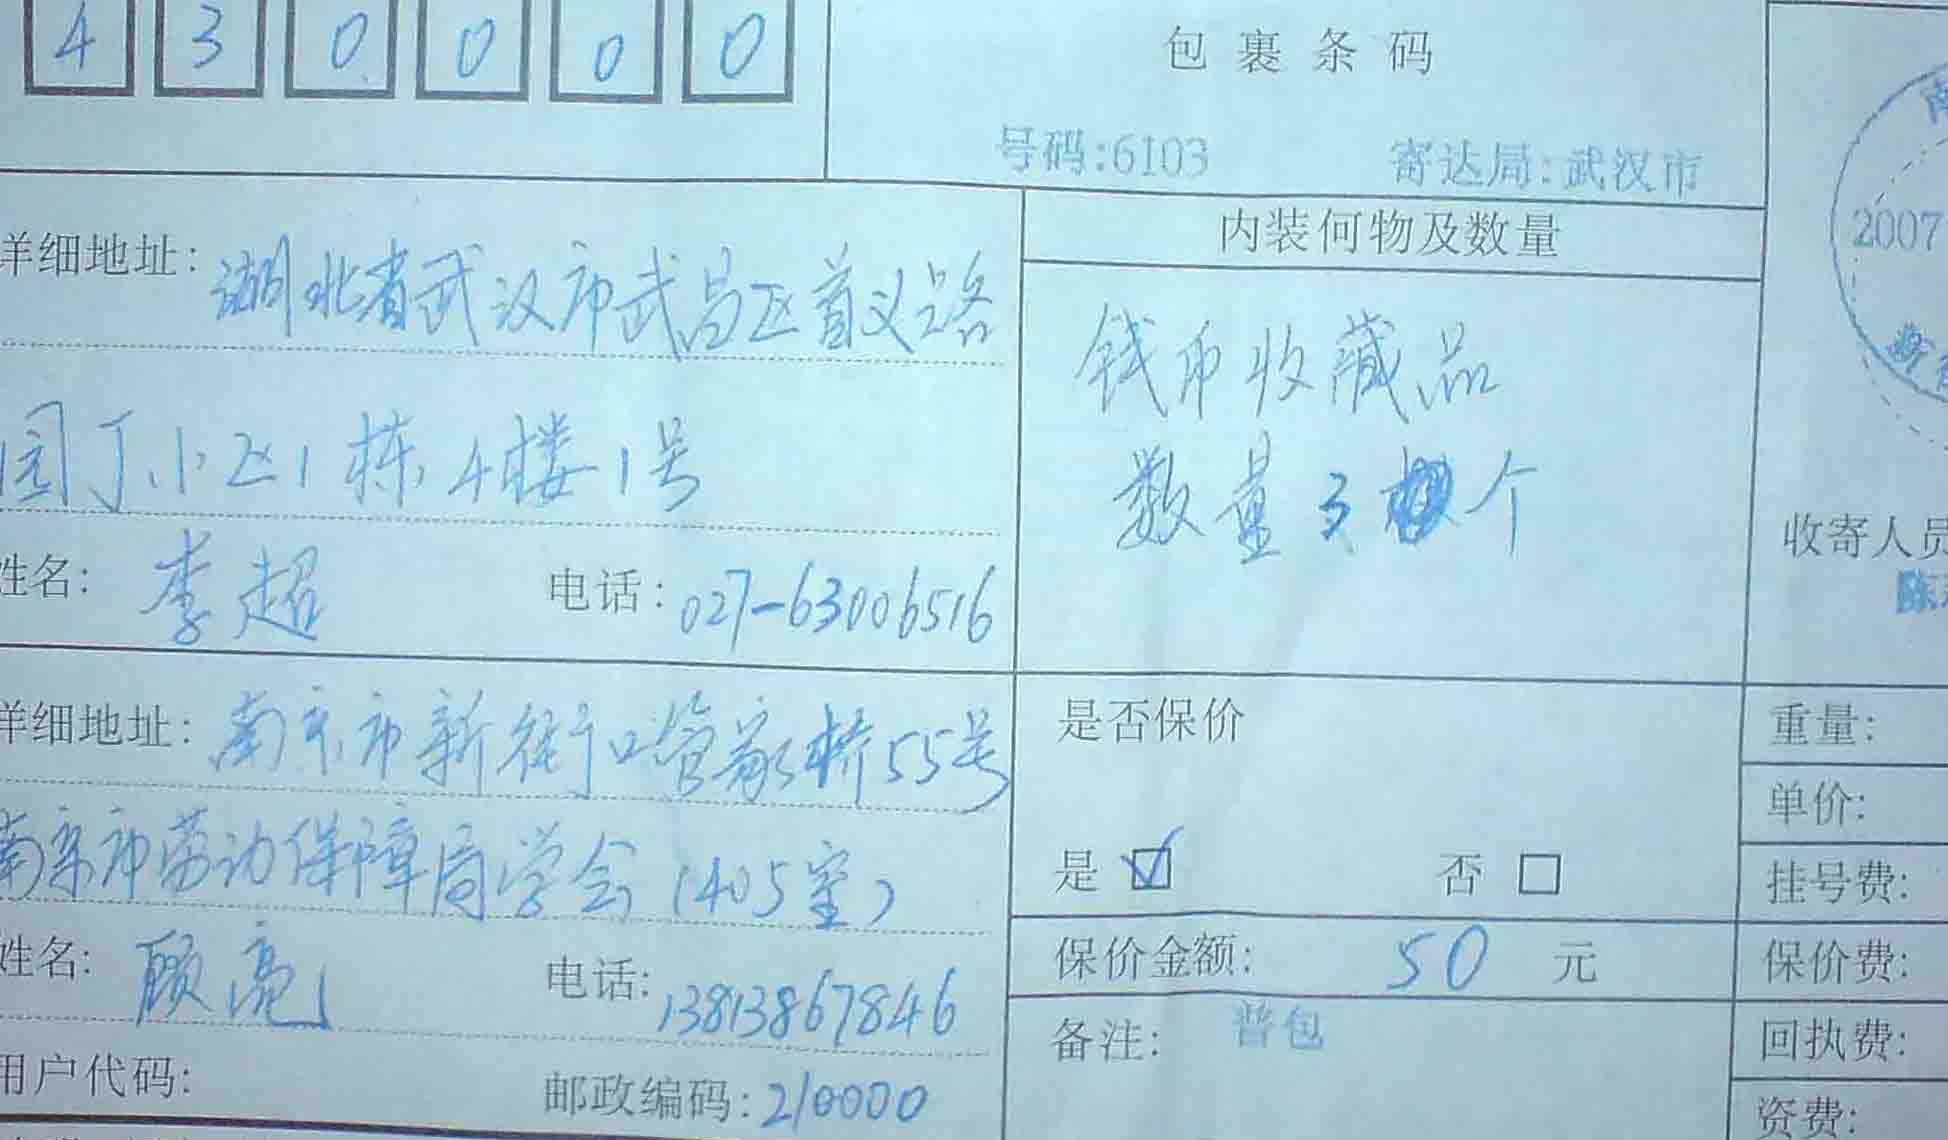 430000
包裹条码
号码:6103 寄达局:武汉市
详细地址: 湖北省武汉市武昌区首义路
园丁小区1栋4楼1号
姓名: 李超 电话: 027-63006516
内装何物及数量
钱币收藏品
数量3 个
2007
收寄人员
详细地址: 南京市新街口管家桥55号
南京市劳动保障局学会(405室)
姓名: 顾亮 电话: 13813867846
用户代码: 邮政编码: 210000
是否保价
是 ☑ 否 □
保价金额: 50 元
备注: 普包
重量:
单价:
挂号费:
保价费:
回执费:
资费: